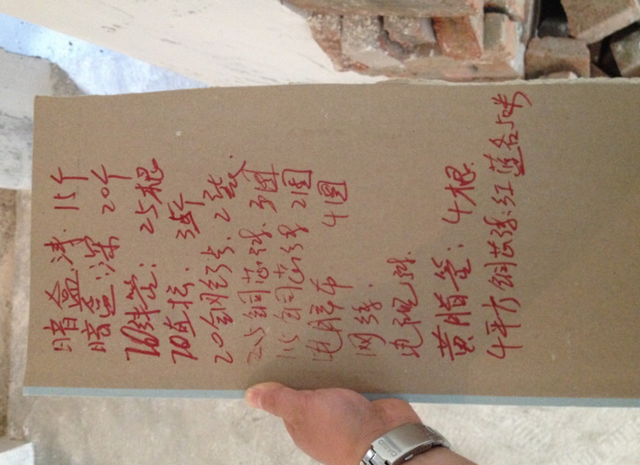 暗盒浅. 15个
暗盒:深 20个
20线管: 25根
20直接. 35个
20钢钉卡. 2袋.
2.5铜芯线. 3圈
1.5铜芯线 2圈
电胶布 4圈
网线.
电视线.
黄腊管: 4根.
4平方铜芯线:红蓝各5米